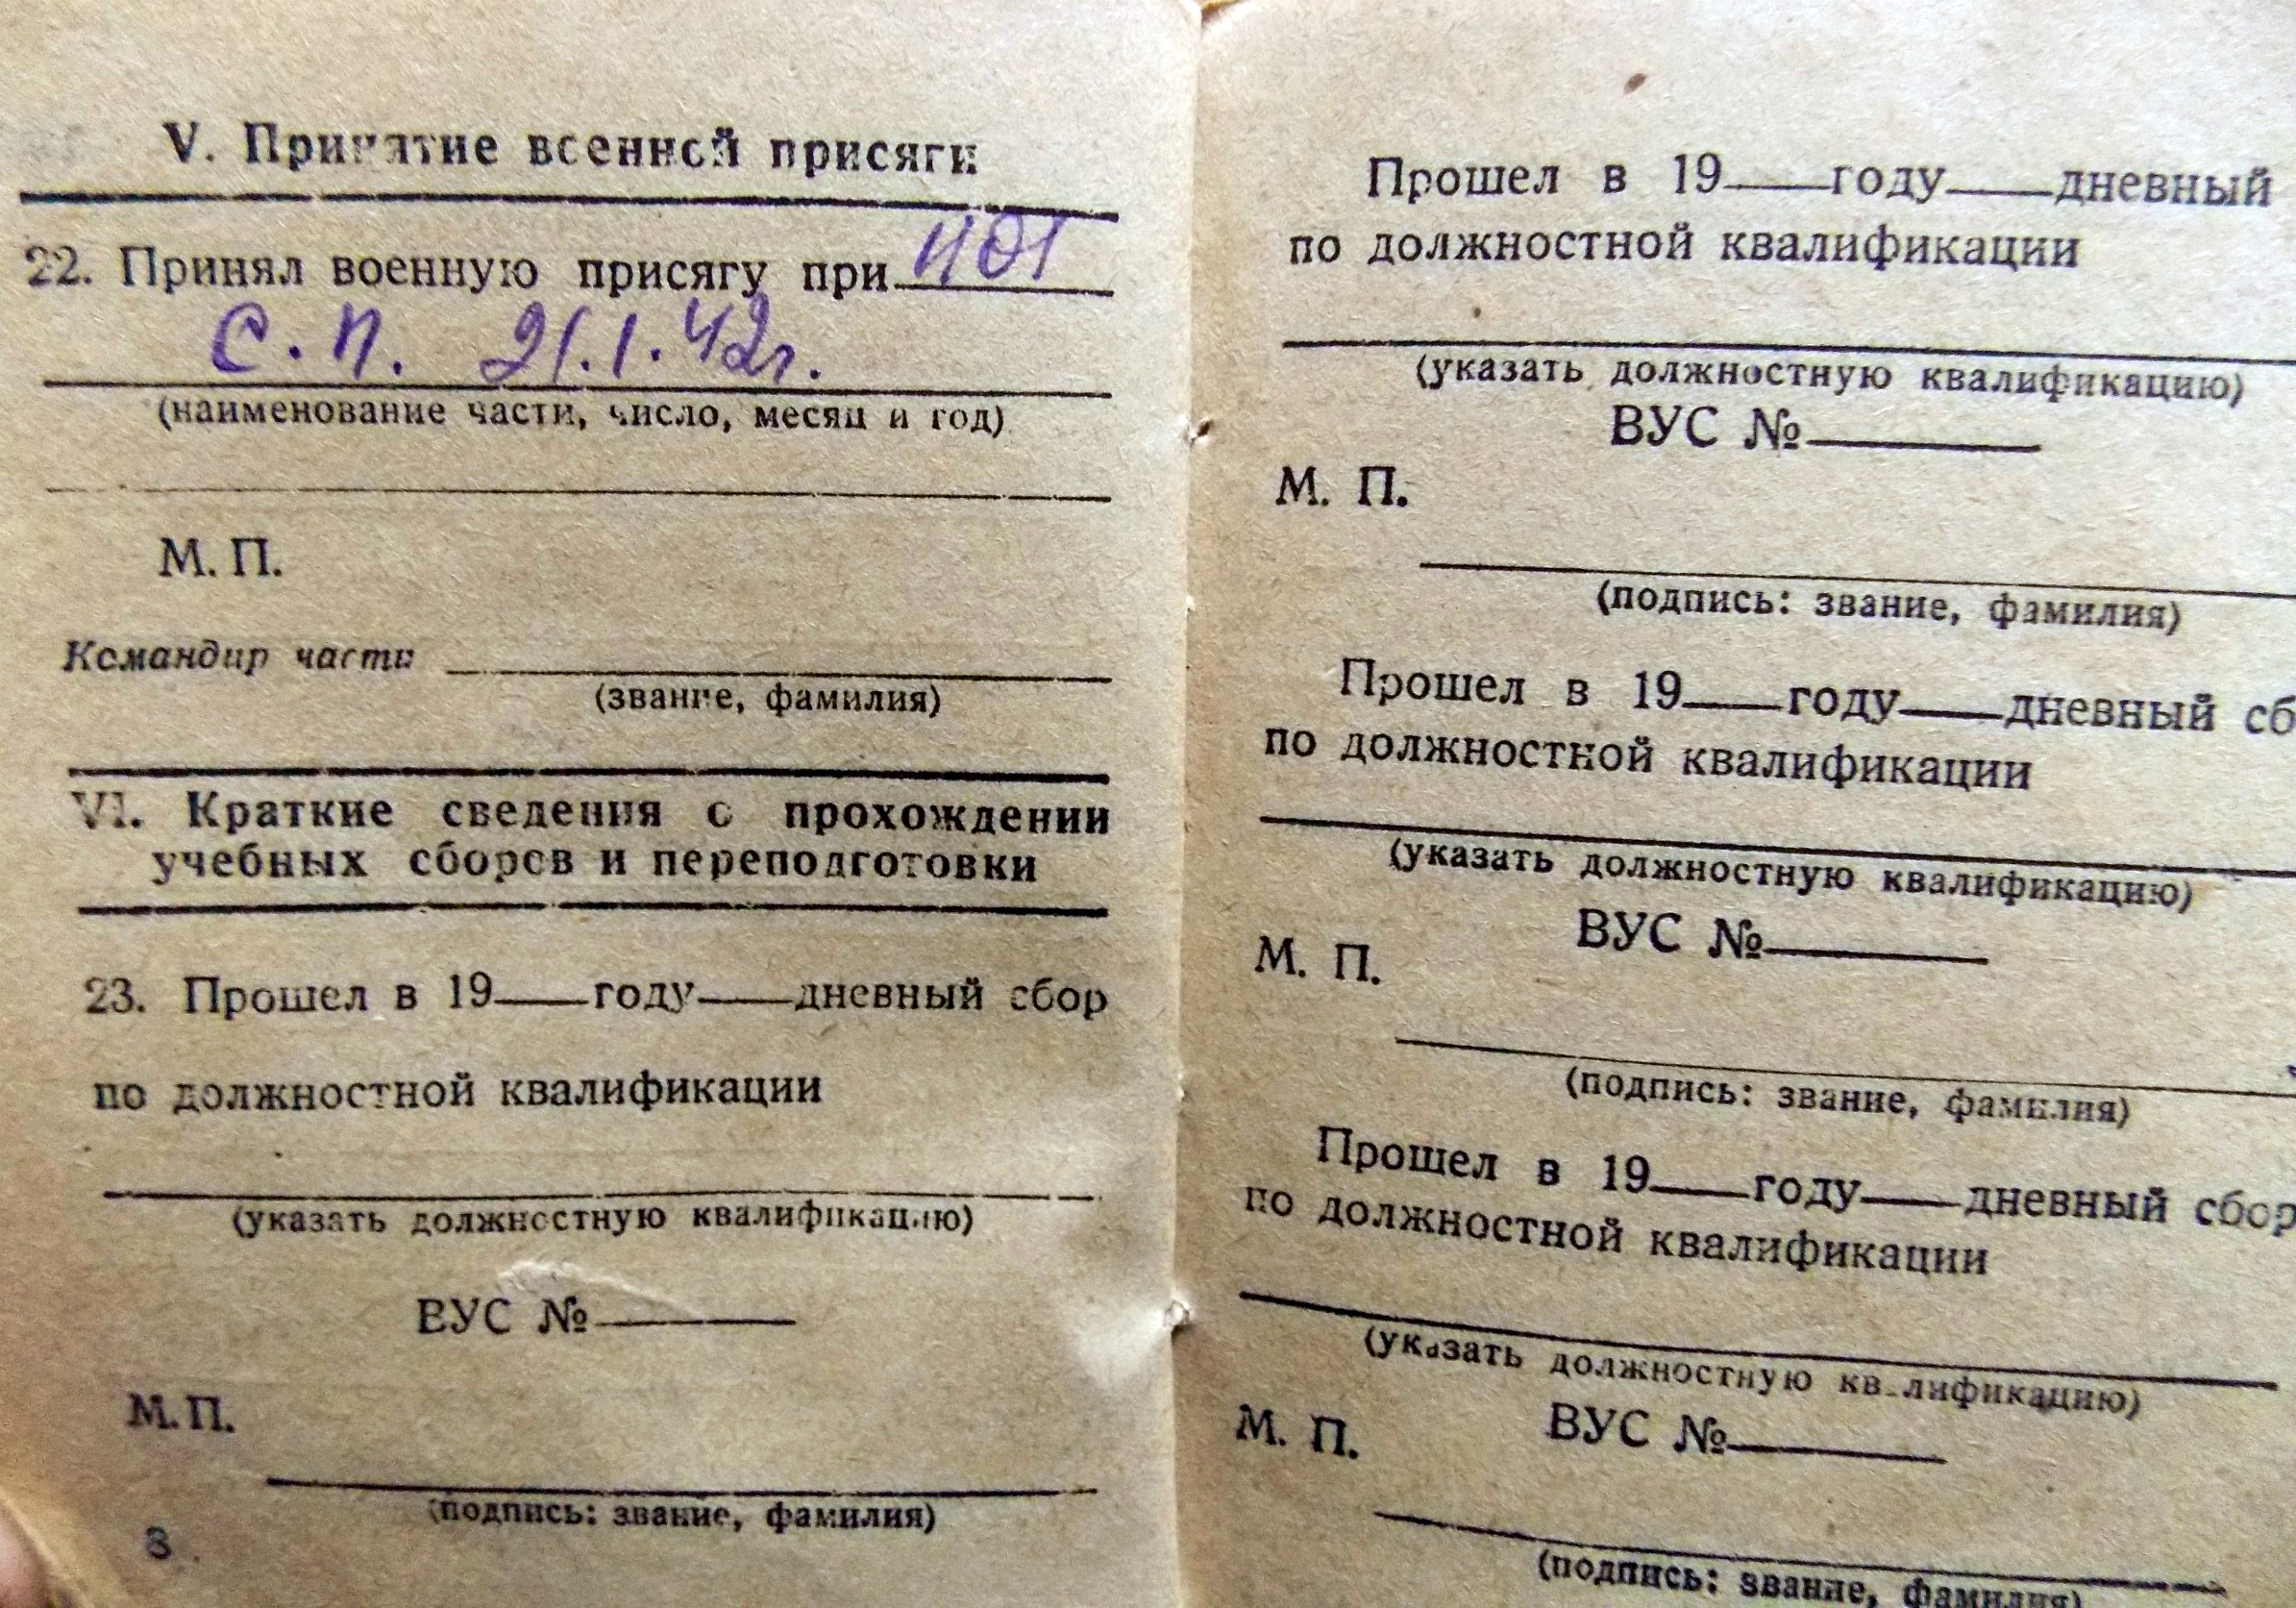 V. Принятие военной присяги
22. Принял военную присягу при 1101
С. П. 21.1.42г.
(наименование части, число, месяц и год)
М. П.
Командир части
(звание, фамилия)
VI. Краткие сведения о прохождении
учебных сборов и переподготовки
23. Прошел в 19 году дневный сбор
по должностной квалификации
(указать должностную квалификацию)
ВУС №
М. П.
(подпись: звание, фамилия)
8
Прошел в 19 году дневный
по должностной квалификации
(указать должностную квалификацию)
ВУС №
М. П.
(подпись: звание, фамилия)
Прошел в 19 году дневный сб
по должностной квалификации
(указать должностную квалификацию)
ВУС №
М. П.
(подпись: звание, фамилия)
Прошел в 19 году дневный сбор
по должностной квалификации
(указать должностную квалификацию)
ВУС №
М. П.
(подпись: звание, фамилия)